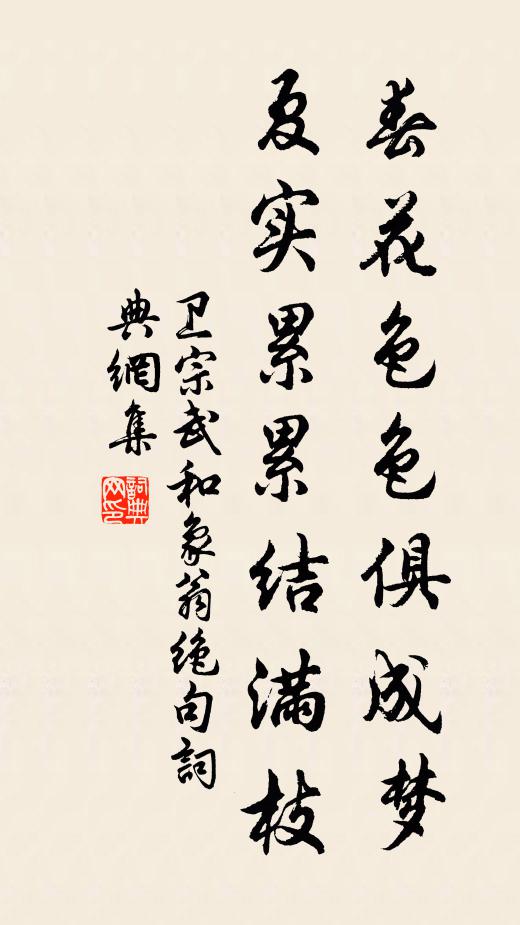 春花色色俱成梦
夏实累累结满枝
卫宗武和象翁绝句詞
典網集
詞典网印